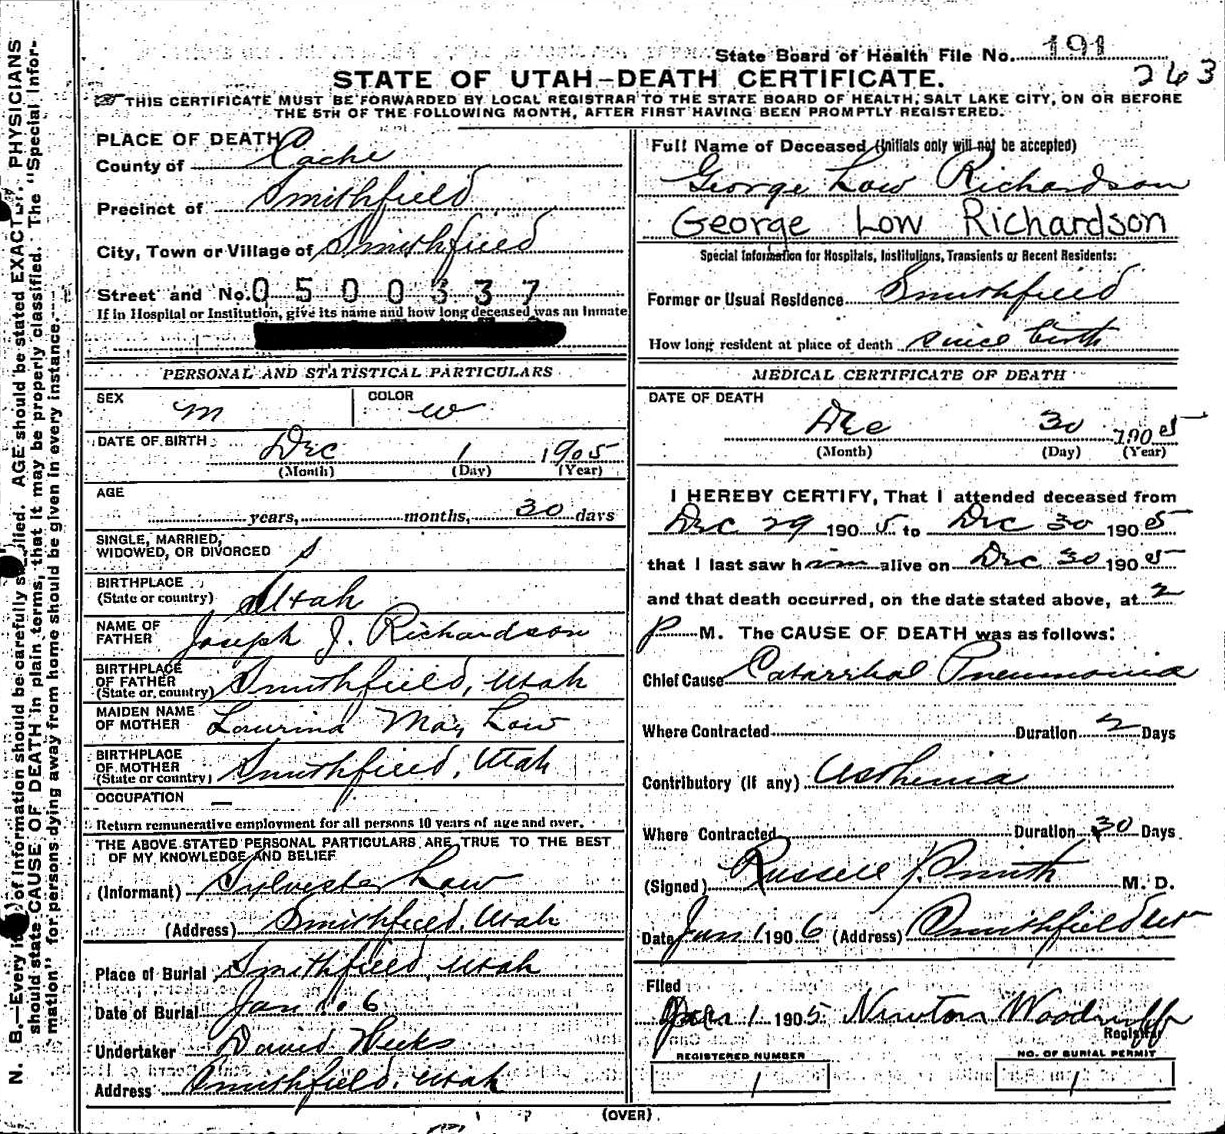 State Board of Health File No. 191
263
STATE OF UTAH—DEATH CERTIFICATE.
THIS CERTIFICATE MUST BE FORWARDED BY LOCAL REGISTRAR TO THE STATE BOARD OF HEALTH, SALT LAKE CITY, ON OR BEFORE
THE 5TH OF THE FOLLOWING MONTH, AFTER FIRST HAVING BEEN PROMPTLY REGISTERED.
PLACE OF DEATH
County of Cache
Precinct of Smithfield
City, Town or Village of Smithfield
Street and No. 0 5 0 0 3 3 7
If in Hospital or Institution, give its name and how long deceased was an Inmate
PERSONAL AND STATISTICAL PARTICULARS
SEX m COLOR w
DATE OF BIRTH Dec 1 1905
(Month) (Day) (Year)
AGE
years, months, 30 days
SINGLE, MARRIED,
WIDOWED, OR DIVORCED S
BIRTHPLACE
(State or country) Utah
NAME OF
FATHER Joseph J. Richardson
BIRTHPLACE
OF FATHER
(State or country) Smithfield, Utah
MAIDEN NAME
OF MOTHER Lourina May Low
BIRTHPLACE
OF MOTHER
(State or country) Smithfield, Utah
OCCUPATION —
Return remunerative employment for all persons 10 years of age and over.
THE ABOVE STATED PERSONAL PARTICULARS ARE TRUE TO THE BEST
OF MY KNOWLEDGE AND BELIEF
(Informant) Sylvester Low
(Address) Smithfield, Utah
Place of Burial Smithfield, Utah
Date of Burial Jan 1. 6
Undertaker David Weeks
Address Smithfield, Utah
Full Name of Deceased (Initials only will not be accepted)
George Low Richardson
George Low Richardson
Special Information for Hospitals, Institutions, Transients or Recent Residents:
Former or Usual Residence Smithfield
How long resident at place of death since birth
MEDICAL CERTIFICATE OF DEATH
DATE OF DEATH
Dec 30 1905
(Month) (Day) (Year)
I HEREBY CERTIFY, That I attended deceased from
Dec 29 1905 to Dec 30 1905
that I last saw him alive on Dec 30 1905
and that death occurred, on the date stated above, at 2
P M. The CAUSE OF DEATH was as follows:
Chief Cause Catarrhal Pneumonia
Where Contracted Duration 2 Days
Contributory (if any) Asthenia
Where Contracted Duration 30 Days
(Signed) Russell J. Smith M. D.
Date Jan 1 1906 (Address) Smithfield Ut
Filed
Jan 1 1905 Newton Woodruff
Registrar
REGISTERED NUMBER
1
NO. OF BURIAL PERMIT
1
(OVER)
N. B.—Every item of information should be carefully supplied. AGE should be stated EXACTLY. PHYSICIANS
should state CAUSE OF DEATH in plain terms, that it may be properly classified. The "Special Infor-
mation" for persons dying away from home should be given in every instance.